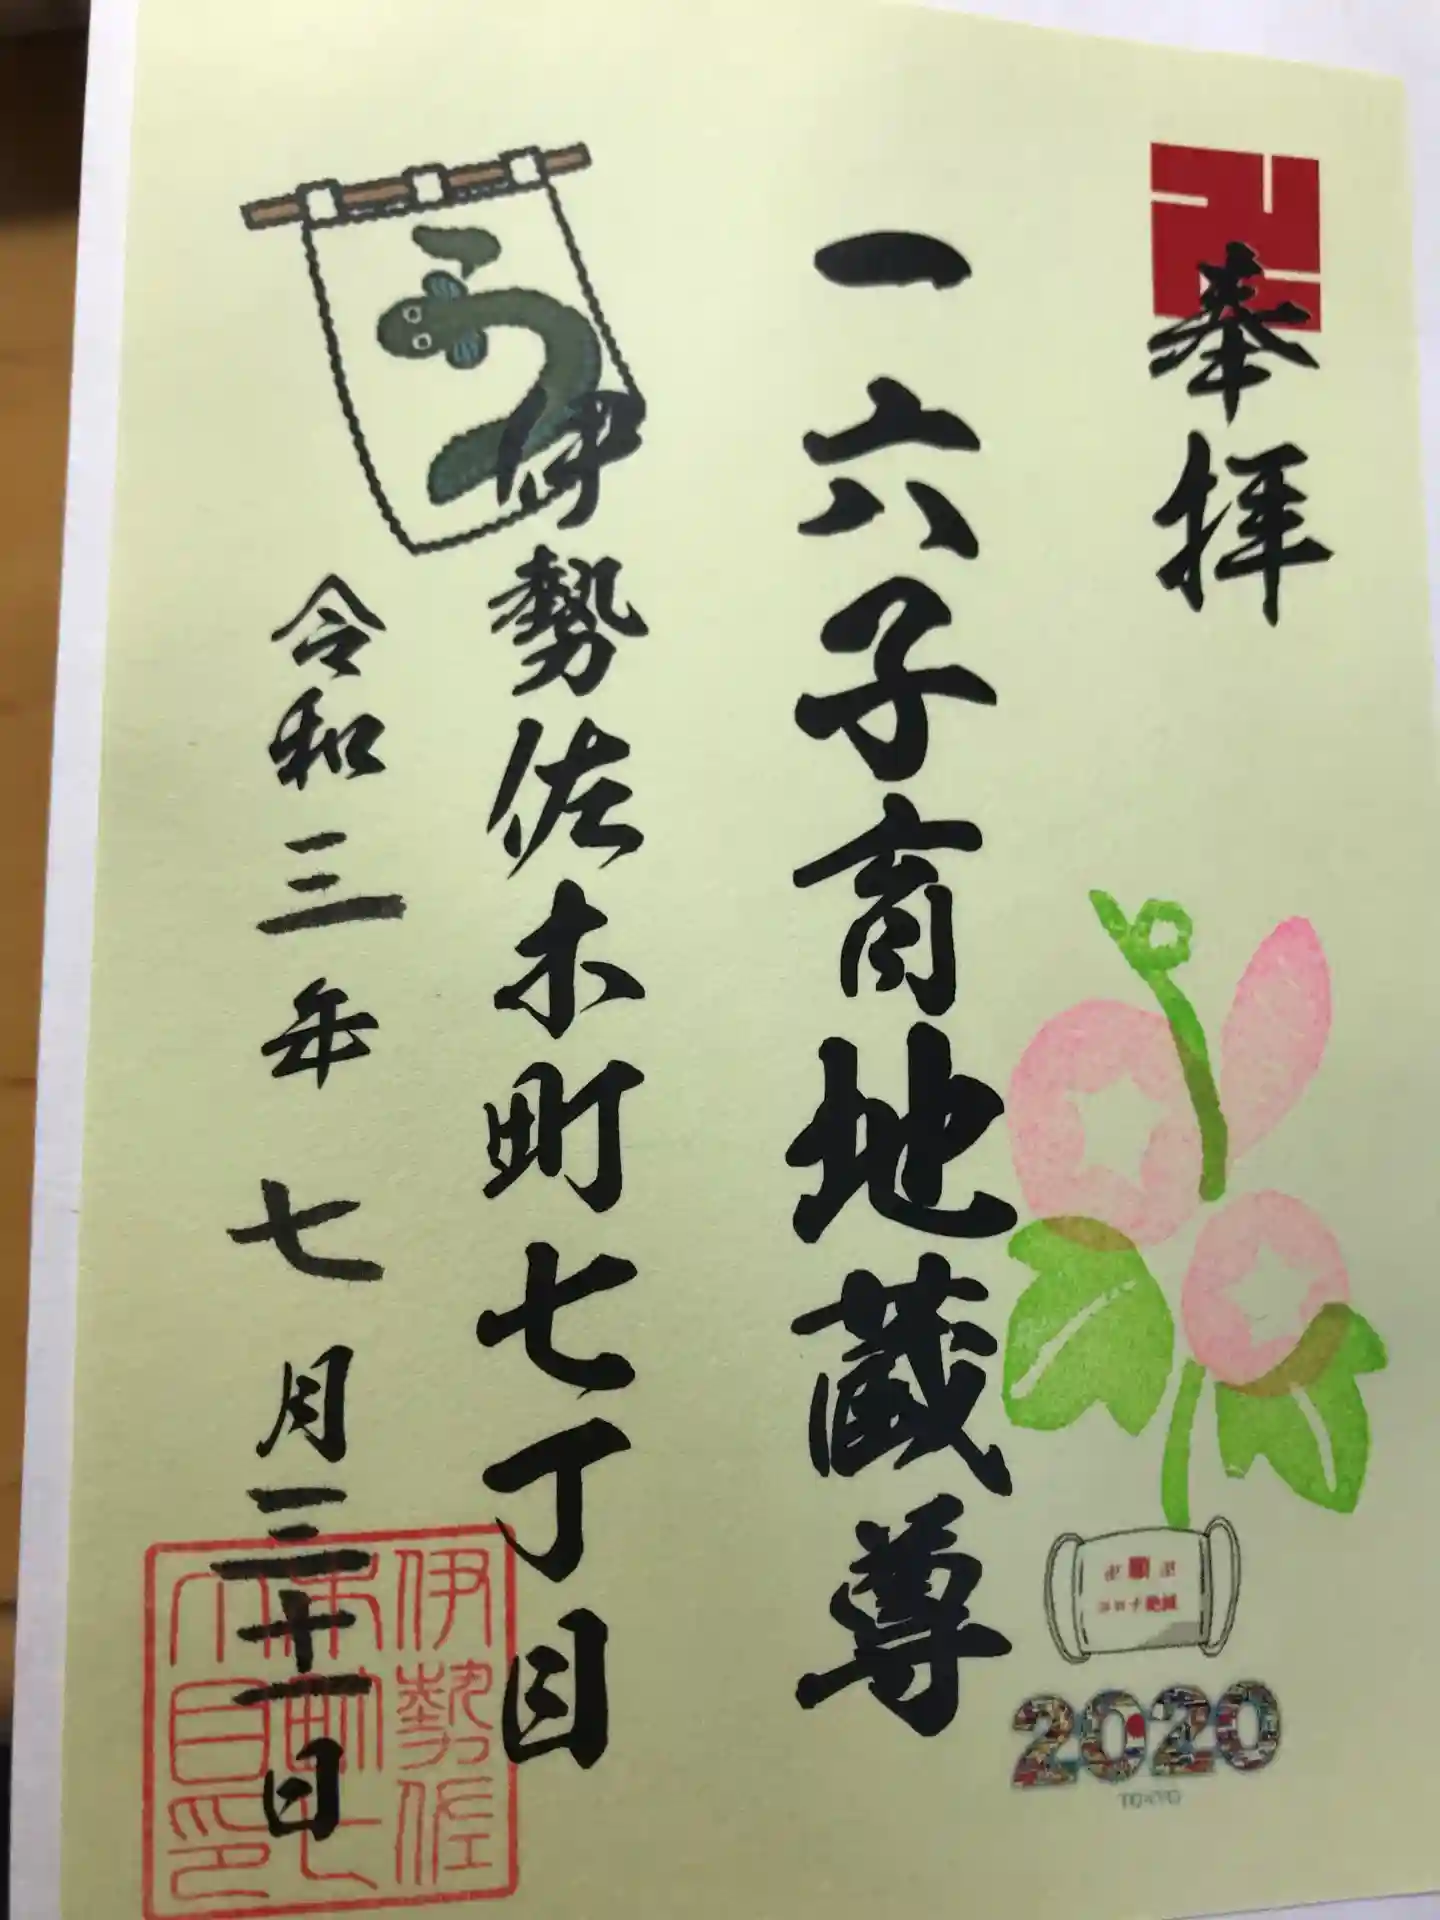 奉拝
一六子育地蔵尊
伊勢佐木町七丁目
令和三年 七月三十一日
う
願
コロナ絶滅
2020
TOKYO
伊勢佐
木町七
丁目印